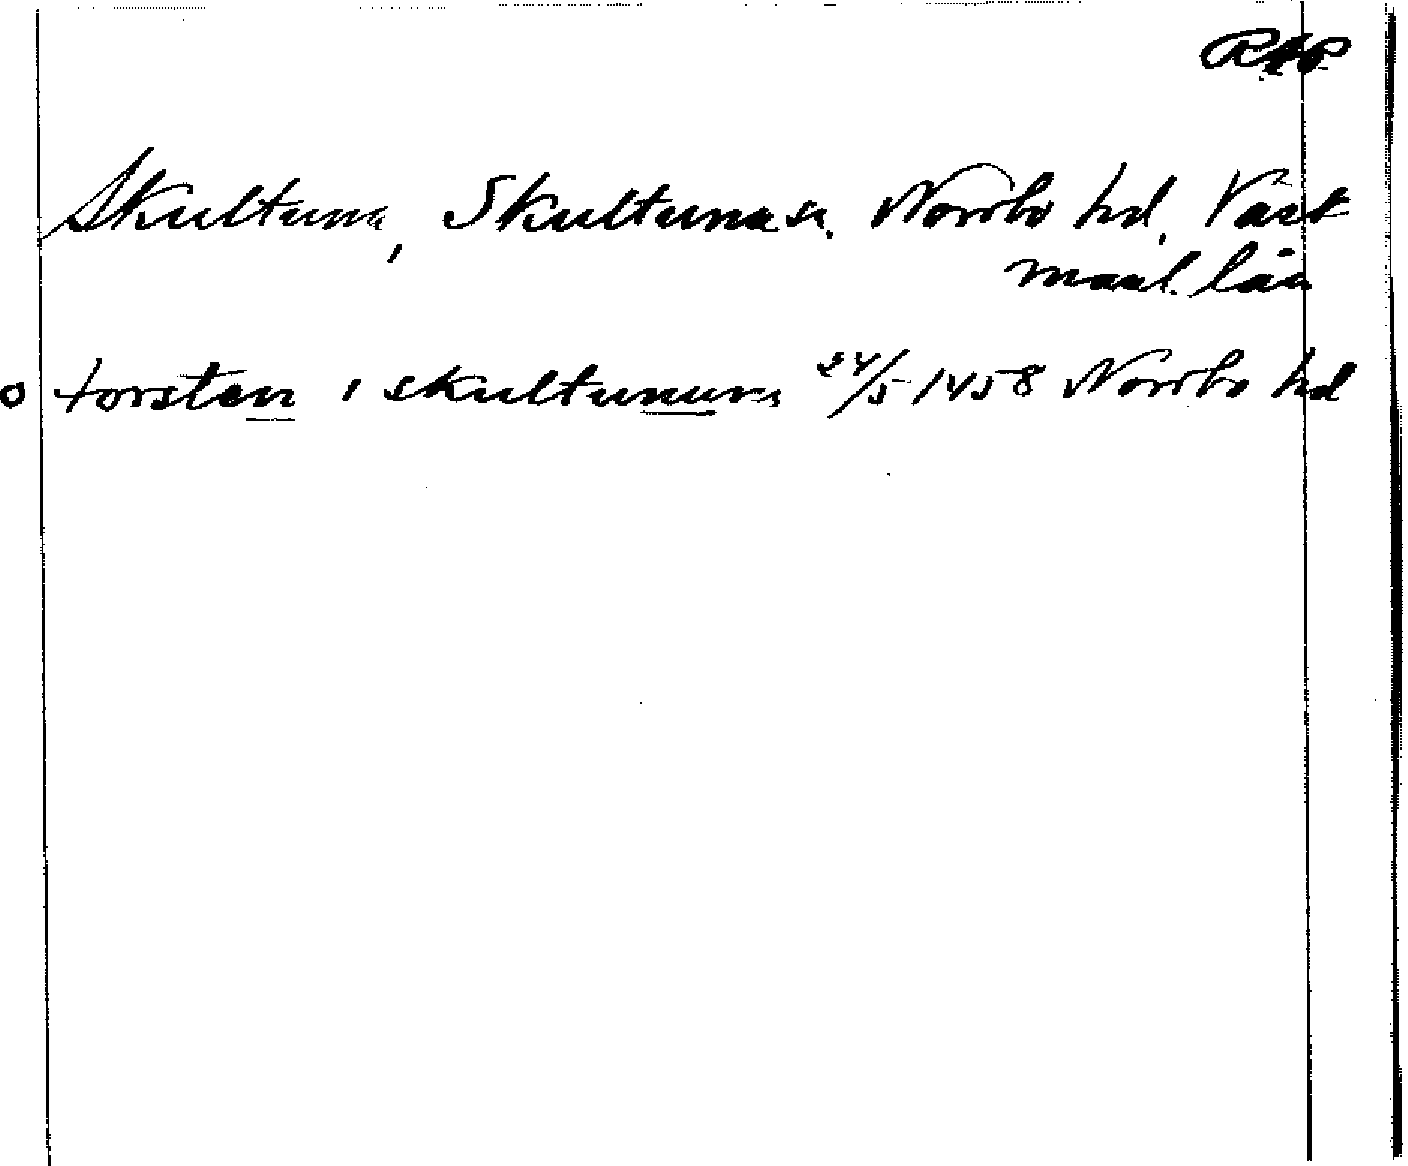 RAP
Skultuna, Skultuna sn. Norrbo hd, Väst
manl. län
o torsten i skultunum 24/5 1458 Norrbo hd